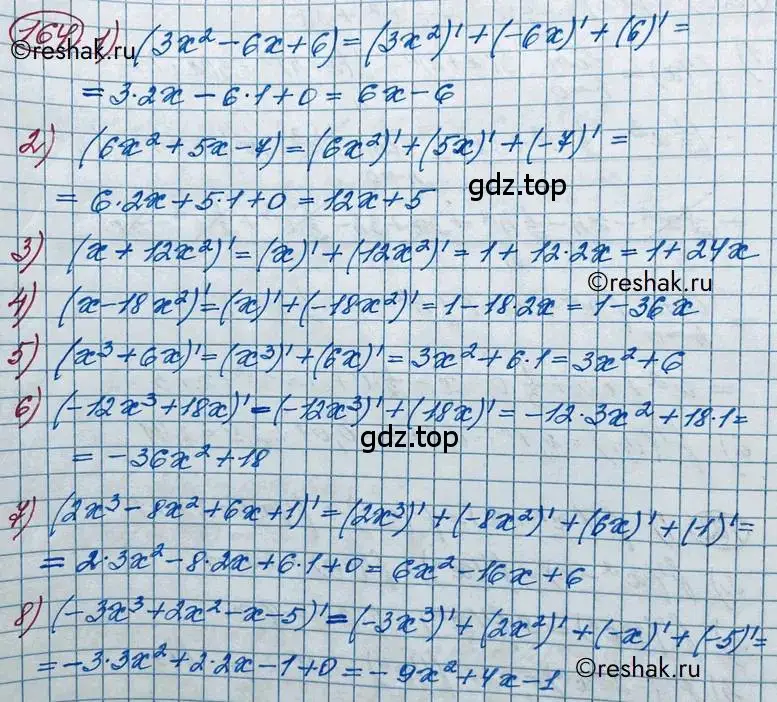 164 1) (3x² - 6x + 6) = (3x²)' + (-6x)' + (6)' =
©reshak.ru
= 3·2x - 6·1 + 0 = 6x - 6
2) (6x² + 5x - 7) = (6x²)' + (5x)' + (-7)' =
gdz.top
= 6·2x + 5·1 + 0 = 12x + 5
3) (x + 12x²)' = (x)' + (12x²)' = 1 + 12·2x = 1 + 24x
©reshak.ru
4) (x - 18x²)' = (x)' + (-18x²)' = 1 - 18·2x = 1 - 36x
5) (x³ + 6x)' = (x³)' + (6x)' = 3x² + 6·1 = 3x² + 6
6) (-12x³ + 18x)' = (-12x³)' + (18x)' = -12·3x² + 18·1 =
gdz.top
= -36x² + 18
7) (2x³ - 8x² + 6x + 1)' = (2x³)' + (-8x²)' + (6x)' + (1)' =
= 2·3x² - 8·2x + 6·1 + 0 = 6x² - 16x + 6
8) (-3x³ + 2x² - x - 5)' = (-3x³)' + (2x²)' + (-x)' + (-5)' =
= -3·3x² + 2·2x - 1 + 0 = -9x² + 4x - 1
©reshak.ru